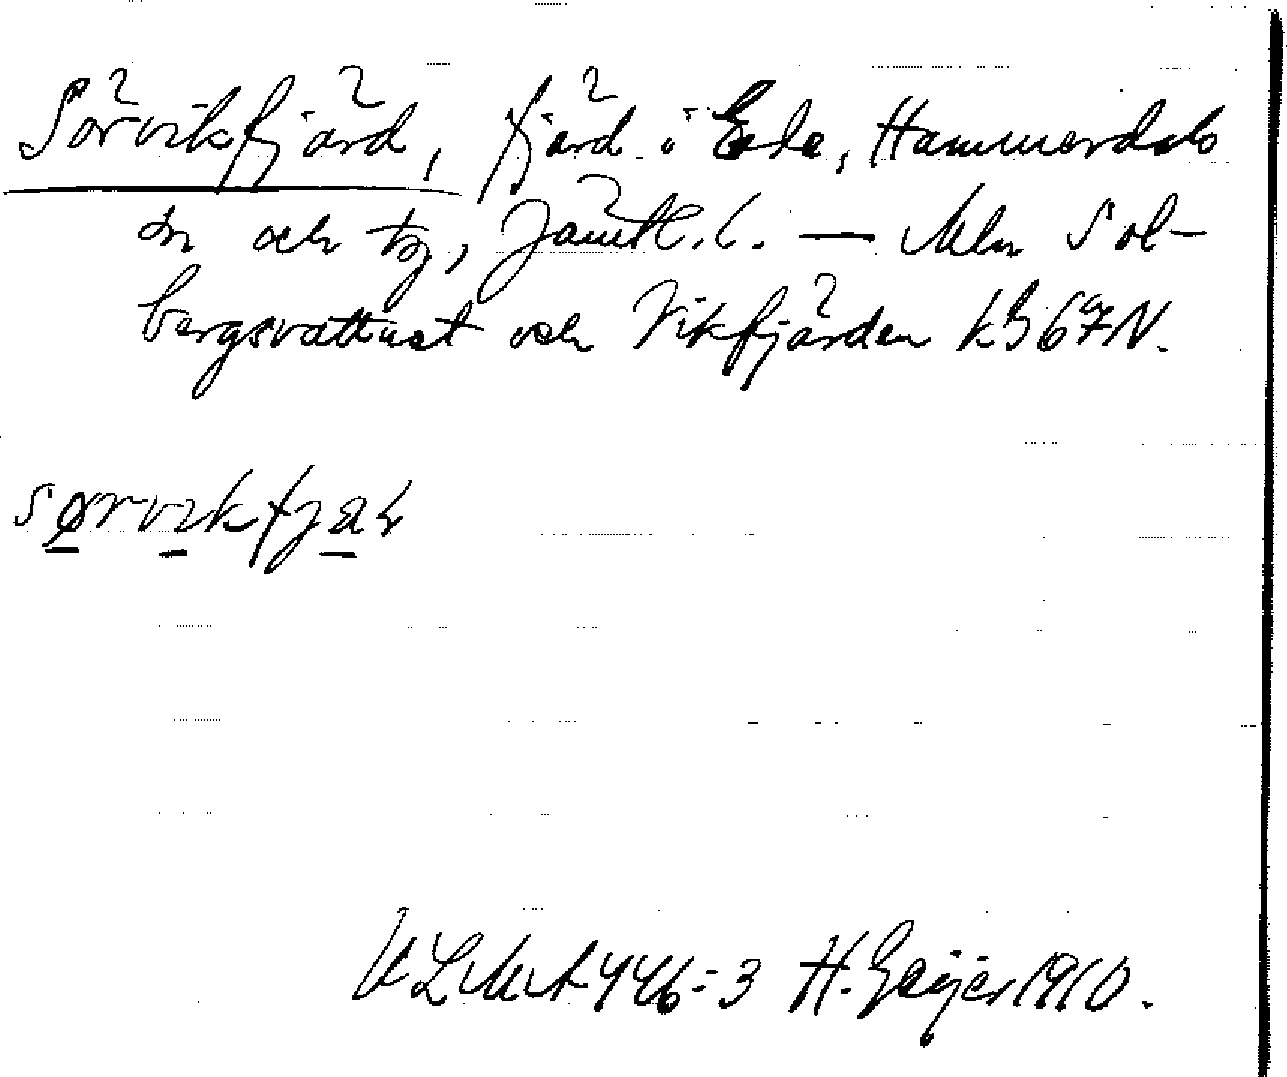 Sörvikfjärd, fjärd i Ede, Hammerdals
sn och tg, Jämtl. l. — Mln Sol-
bergsvattnet och Vikfjärden kb 67 N.
sørvikfjæɽ
ULMA 446:3 H. Geijer 1910.